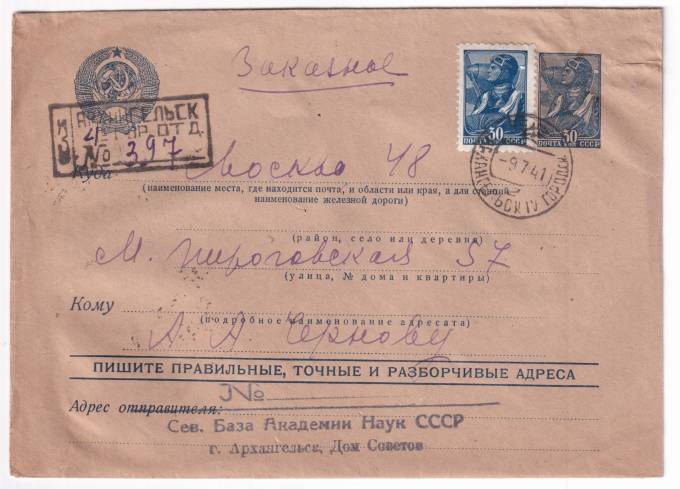 Заказное
АРХАНГЕЛЬСК
4 ГОР. ОТД.
№ 397
30
ПОЧТА СССР
30
ПОЧТА СССР
-9.7.41
Куда Москва 48
(наименование места, где находится почта, и области или края, а для станций
наименование железной дороги)
(район, село или деревня)
М. Пироговская 37
(улица, № дома и квартиры)
Кому
(подробное наименование адресата)
А. А. Чернову
ПИШИТЕ ПРАВИЛЬНЫЕ, ТОЧНЫЕ И РАЗБОРЧИВЫЕ АДРЕСА
№
Адрес отправителя:
Сев. База Академии Наук СССР
г. Архангельск, Дом Советов